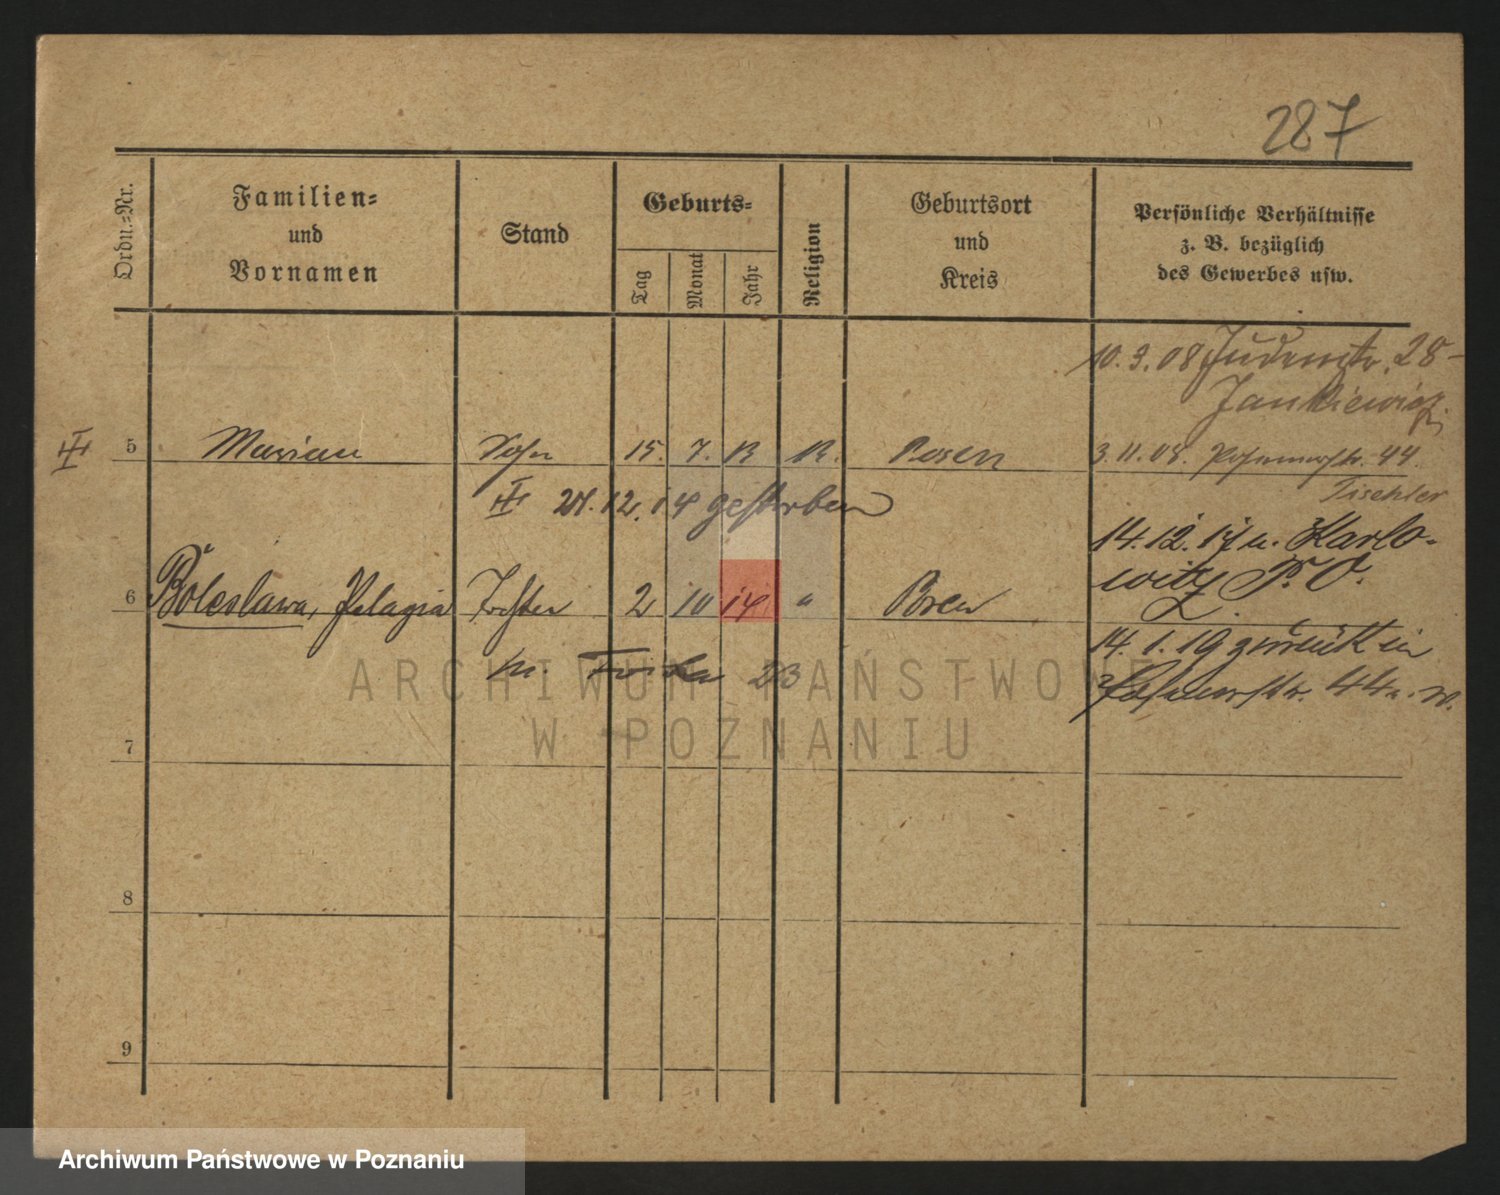 287
Ordn.-Nr.
Familien-
und
Vornamen
Stand
Geburts-
Tag
Monat
Jahr
Religion
Geburtsort
und
Kreis
Persönliche Verhältnisse
z. B. bezüglich
des Gewerbes usw.
10.3.08 Judenstr. 28
Jankiewicz
5 Marian Sohn 15. 7. 13 R. Posen
3.11.08. 44.
Tischler
28.12.14 gestorben
14.12.17 n. Karlo-
witz P. O.
6 Boleslawa, Pelagia Tochter 2 10 14 " Posen
14.1.19 zurück in
44 n. w.
23
7
8
9
ARCHIWUM PAŃSTWOWE
W POZNANIU
Archiwum Państwowe w Poznaniu